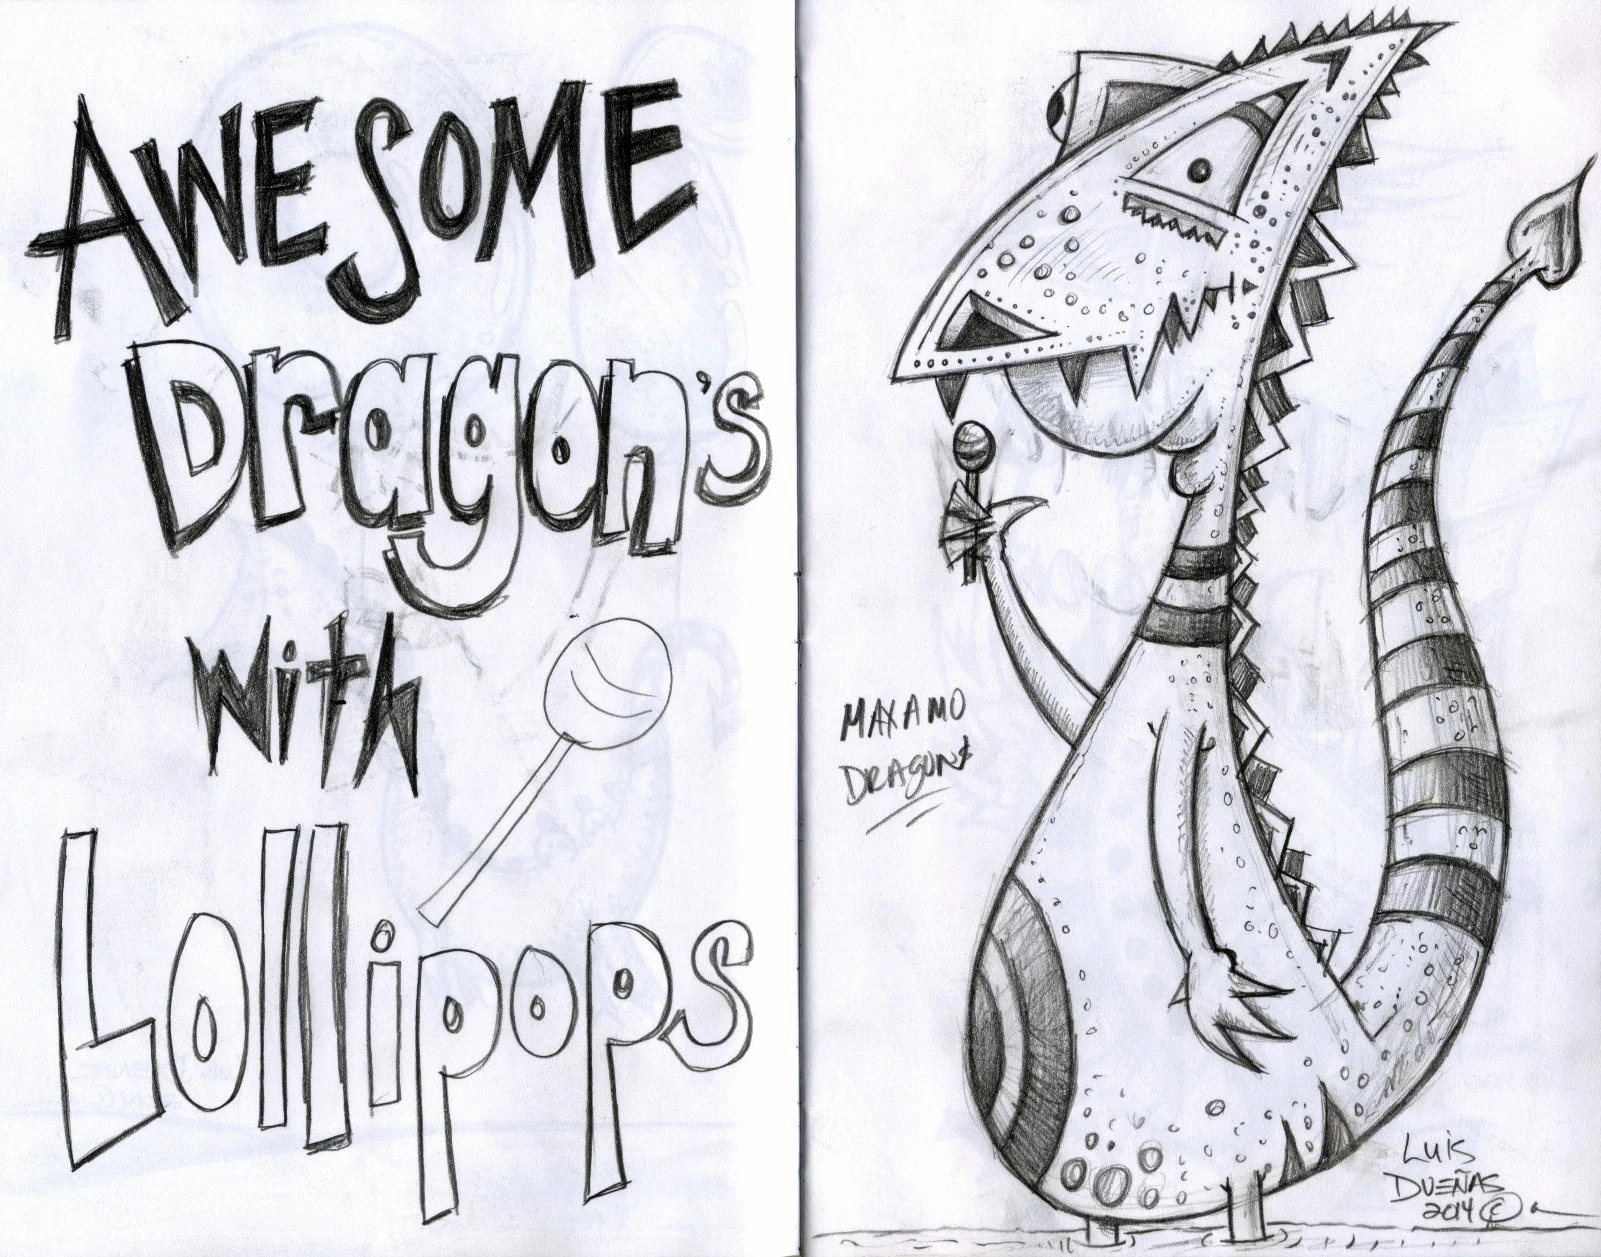 AWESOME
Dragon's
with
Lollipops
MAXAMO
DRAGONS
LUIS
DUEÑAS
2014 ©